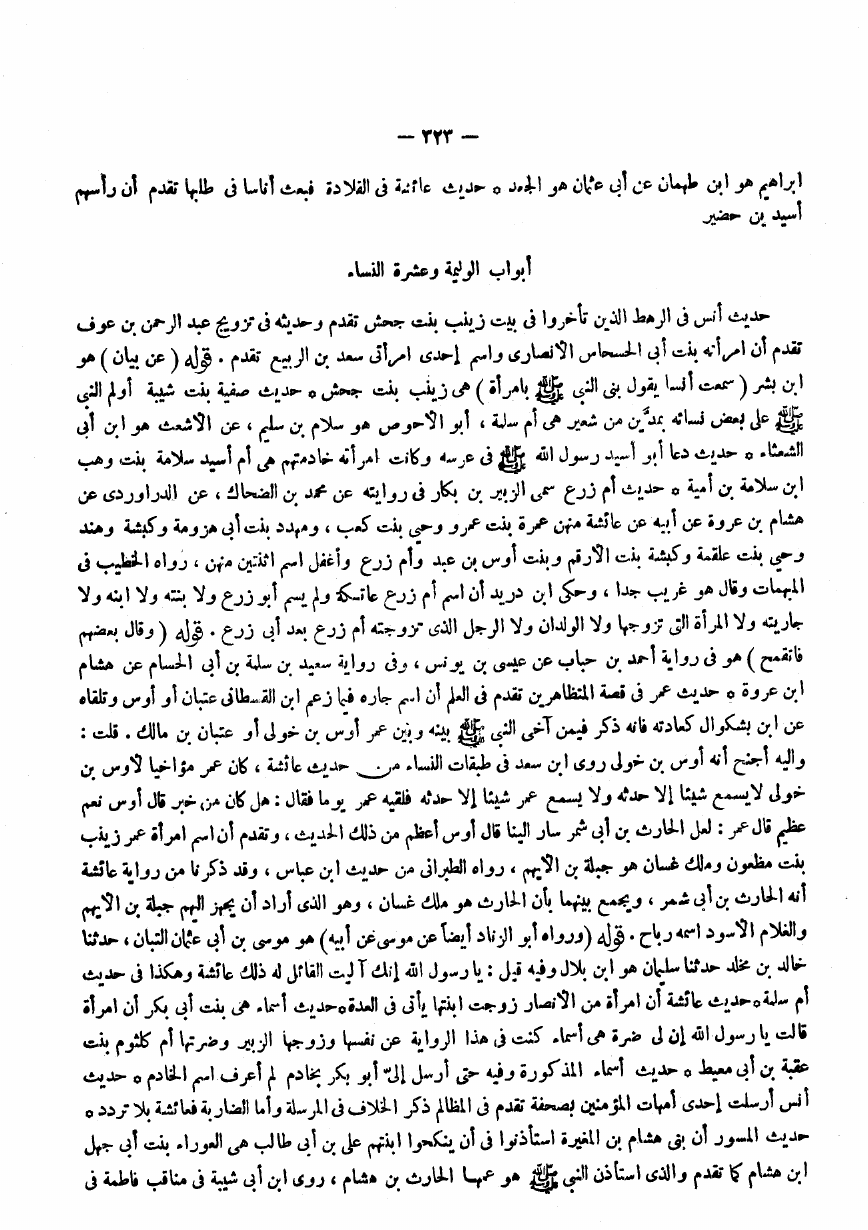 — ٣٢٣ —
ابراهيم هو ابن طهمان عن أبى عثمان هو الجعد ٥ حديث عائشة فى القلادة فبعث أناسا فى طلبها تقدم أن رأسهم
أسيد بن حضير
أبواب الوليمة وعشرة النساء
حديث أنس فى الرهط الذين تأخروا فى بيت زينب بنت جحش تقدم وحديثه فى تزويج عبد الرحمن بن عوف
تقدم أن امرأته بنت أبى الحسحاس الأنصارى واسم إحدى امرأتى سعد بن الربيع تقدم . قوله ( عن بيان ) هو
ابن بشر ( سمعت أنسا يقول بنى النبى ﷺ بامرأة ) هى زينب بنت جحش ٥ حديث صفية بنت شيبة أولم النبى
ﷺ على بعض نسائه بمدَّين من شعير هى أم سلمة ، أبو الأحوص هو سلام بن سليم ، عن الأشعث هو ابن أبى
الشعثاء ٥ حديث دعا أبو أسيد رسول الله ﷺ فى عرسه وكانت امرأته خادمتهم هى أم أسيد سلامة بنت وهب
ابن سلامة بن أمية ٥ حديث أم زرع سمى الزبير بن بكار فى روايته عن محمد بن الضحاك ، عن الدراوردى عن
هشام بن عروة عن أبيه عن عائشة منهن عمرة بنت عمرو وحبي بنت كعب ، ومهدد بنت أبى هزومة وكبشة وهند
وحبي بنت علقمة وكبشة بنت الأرقم وبنت أوس بن عبد وأم زرع وأغفل اسم اثنتين منهن ، رواه الخطيب فى
المبهمات وقال هو غريب جدا ، وحكى ابن دريد أن اسم أم زرع عاتكة ولم يسم أبو زرع ولا بنته ولا ابنه ولا
جاريته ولا المرأة التى تزوجها ولا الولدان ولا الرجل الذى تزوجته أم زرع بعد أبى زرع . قوله ( وقال بعضهم
فاتقمح ) هو فى رواية أحمد بن حباب عن عيسى بن يونس ، وفى رواية سعيد بن سلمة بن أبى الحسام عن هشام
ابن عروة ٥ حديث عمر فى قصة المتظاهرين تقدم فى العلم أن اسم جاره فيما زعم ابن القسطلانى عتبان أو أوس وتلقاه
عن ابن بشكوال كعادته فانه ذكر فيمن آخى النبى ﷺ بينه وبين عمر أوس بن خولى أو عتبان بن مالك . قلت :
واليه أجنح أنه أوس بن خولى روى ابن سعد فى طبقات النساء من حديث عائشة ، كان عمر مؤاخيا لأوس بن
خولى لايسمع شيئا إلا حدثه ولا يسمع عمر شيئا إلا حدثه فلقيه عمر يوما فقال : هل كان من خبر قال أوس نعم
عظيم قال عمر : لعل الحارث بن أبى شمر سار الينا قال أوس أعظم من ذلك الحديث ، وتقدم أن اسم امرأة عمر زينب
بنت مظعون وملك غسان هو جبلة بن الأيهم ، رواه الطبرانى من حديث ابن عباس ، وقد ذكرنا من رواية عائشة
أنه الحارث بن أبى شمر ، ويجمع بينهما بأن الحارث هو ملك غسان ، وهو الذى أراد أن يجهز اليهم جبلة بن الأيهم
والغلام الأسود اسمه رباح . قوله (ورواه أبو الزناد أيضاً عن موسى عن أبيه) هو موسى بن أبى عثمان التبان ، حدثنا
خالد بن مخلد حدثنا سليمان هو ابن بلال وفيه قيل : يا رسول الله إنك آليت القائل له ذلك عائشة وهكذا فى حديث
أم سلمة ٥ حديث عائشة أن امرأة من الأنصار زوجت ابنتها يأتى فى العدة ٥ حديث أسماء هى بنت أبى بكر أن امرأة
قالت يا رسول الله إن لى ضرة هى أسماء كنت فى هذا الرواية عن نفسها وزوجها الزبير وضرتها أم كلثوم بنت
عقبة بن أبى معيط ٥ حديث أسماء المذكورة وفيه حتى أرسل إلىّ أبو بكر بخادم لم أعرف اسم الخادم ٥ حديث
أنس أرسلت إحدى أمهات المؤمنين بصحفة تقدم فى المظالم ذكر الخلاف فى المرسلة وأما الضاربة فعائشة بلا تردد ٥
حديث المسور أن بنى هشام بن المغيرة استأذنوا فى أن ينكحوا ابنتهم على بن أبى طالب هى العوراء بنت أبى جهل
ابن هشام كما تقدم والذى استأذن النبى ﷺ هو عمها الحارث بن هشام ، روى ابن أبى شيبة فى مناقب فاطمة فى